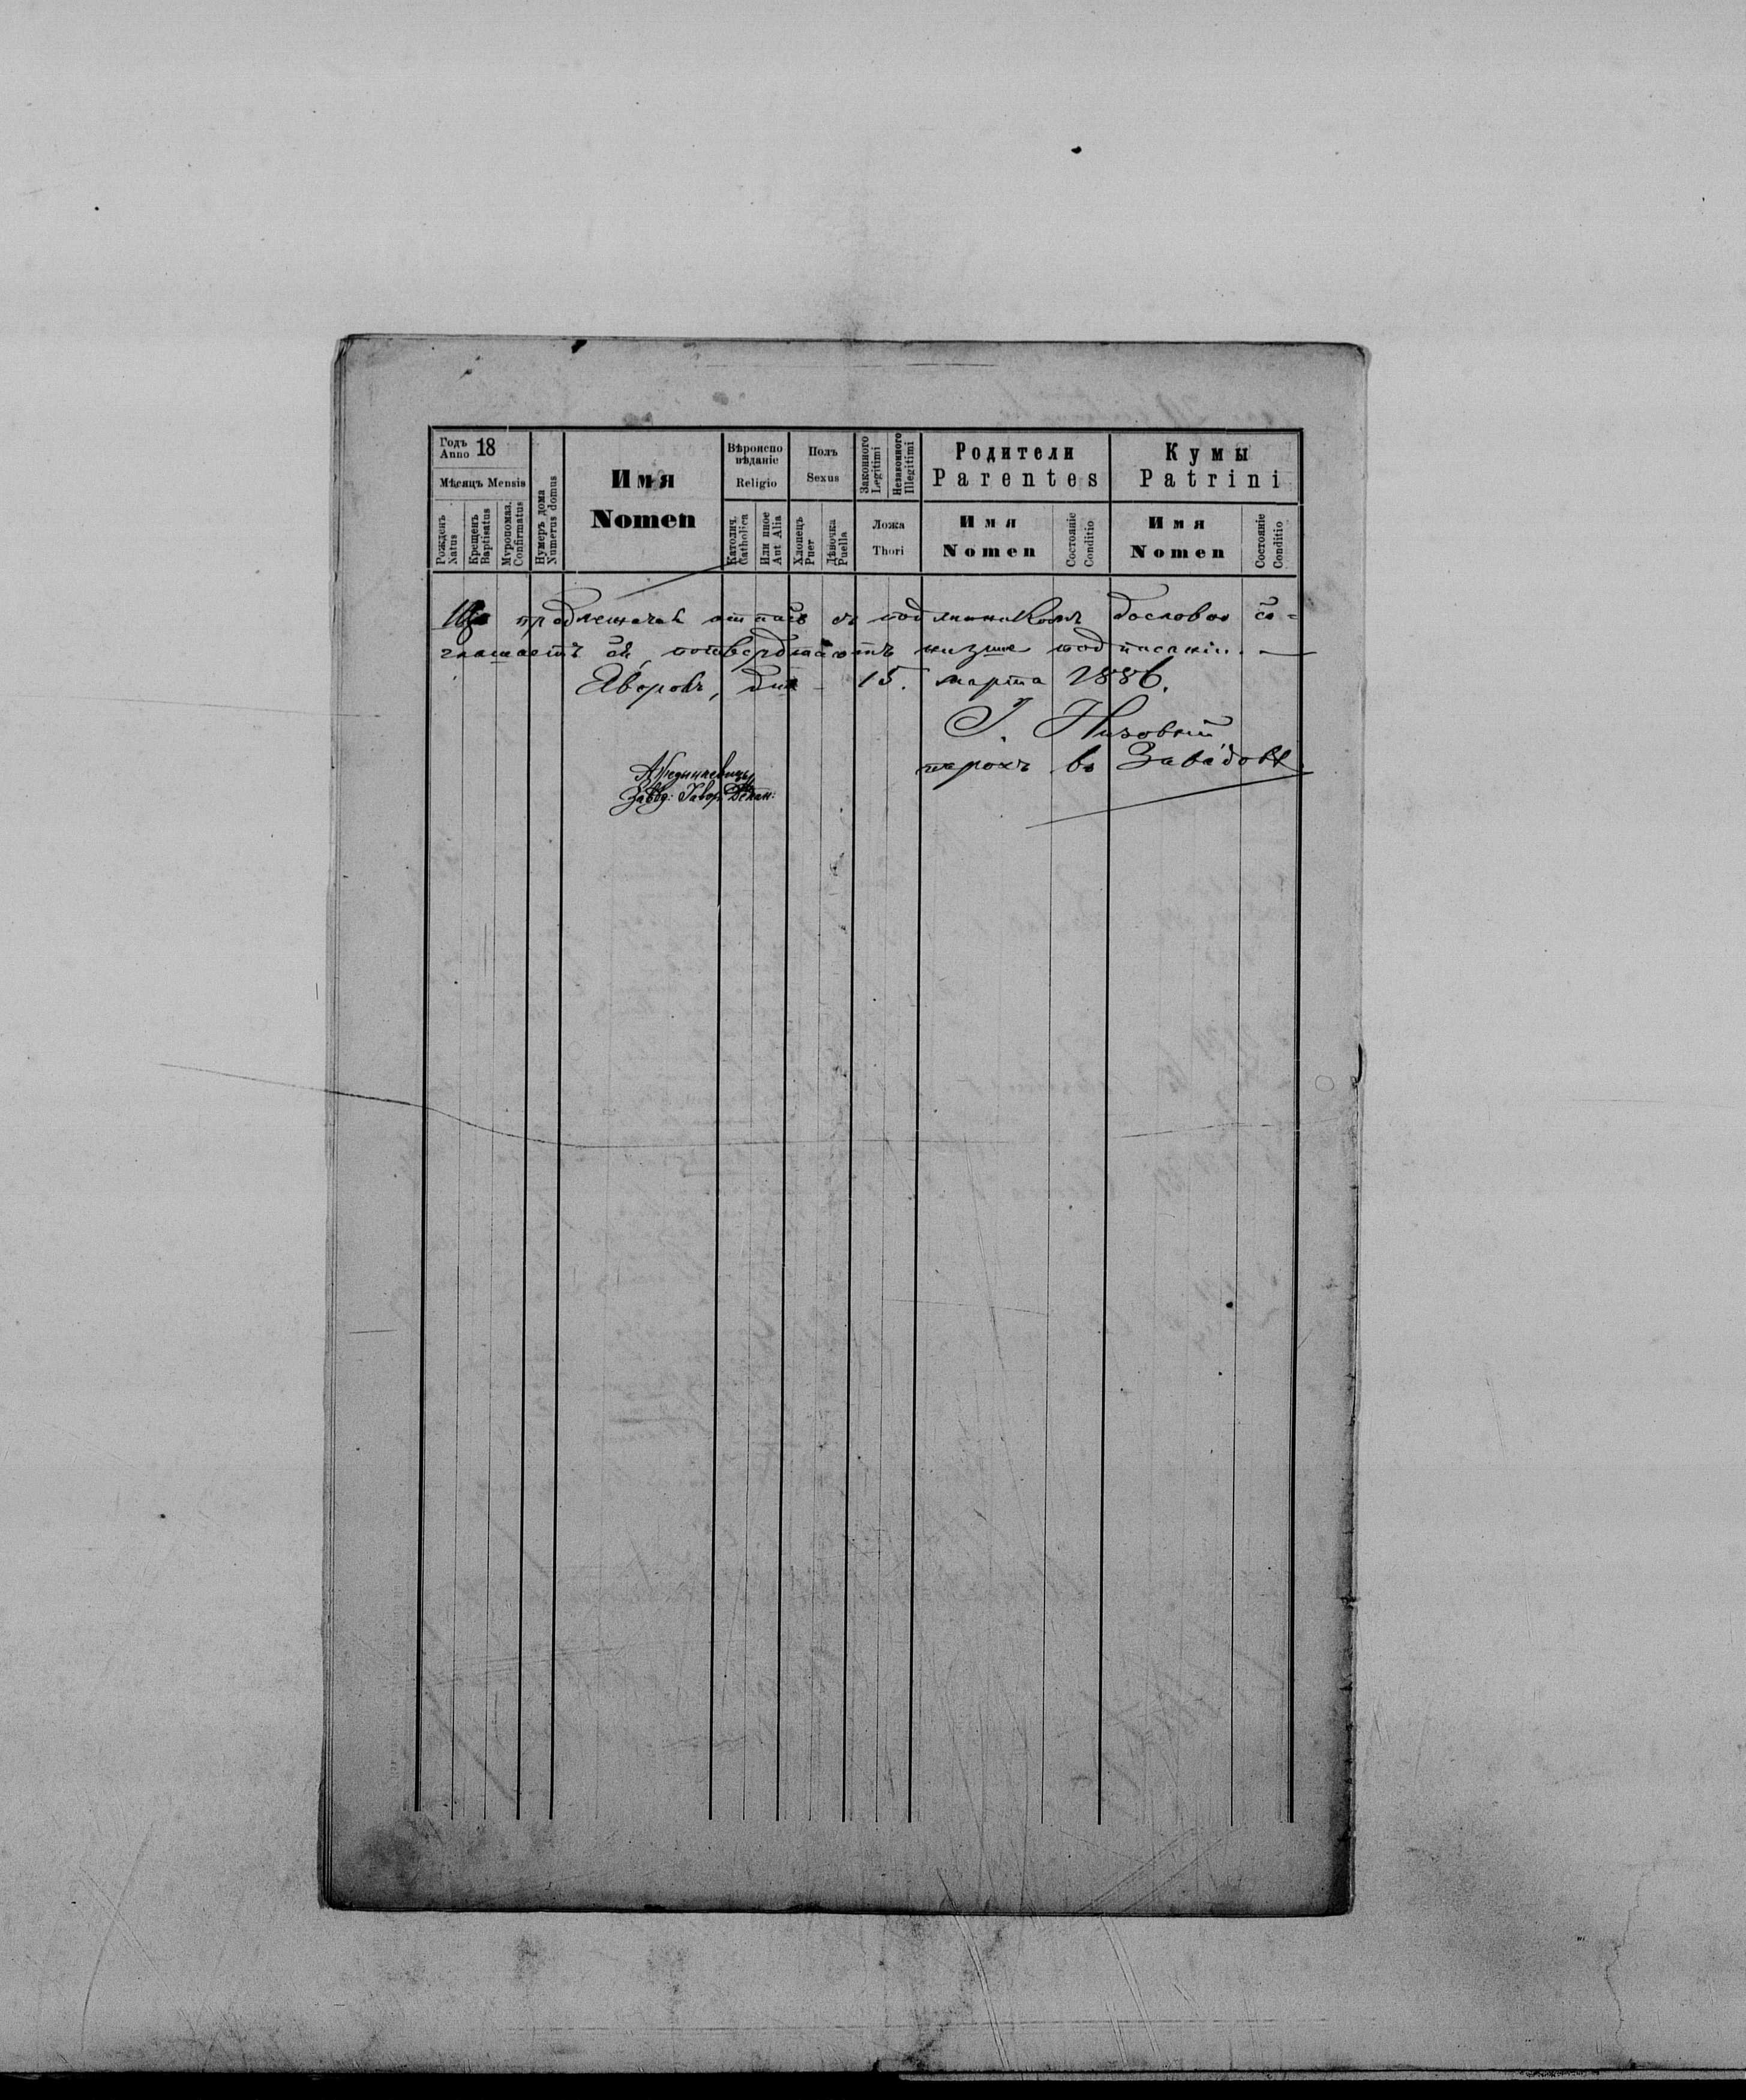 Годъ Anno 18
Мѣсяць Mensis
Рожденъ Natus
Крещенъ Baptisatus
Мѵропомаз. Confirmatus
Нумеръ дома Numerus domus
Имя Nomen
Вѣроиспо вѣданіе Religio
Католич. Catholica
Или иное Aut Alia
Полъ Sexus
Хлопецъ Puer
Дѣвочка Puella
Законного Legitimi
Незаконного Illegitimi
Ложа Thori
Родители Parentes
Имя Nomen
Состояніе Conditio
Кумы Patrini
Имя Nomen
Состояніе Conditio
Що предлежачая отпись съ подлинникомъ дословно со=
глашаетъ ся, потверджаютъ низше подписаніи. —
Яворовъ, дня 15. марта 1886.
І. Низовый
парохъ въ Завадовѣ